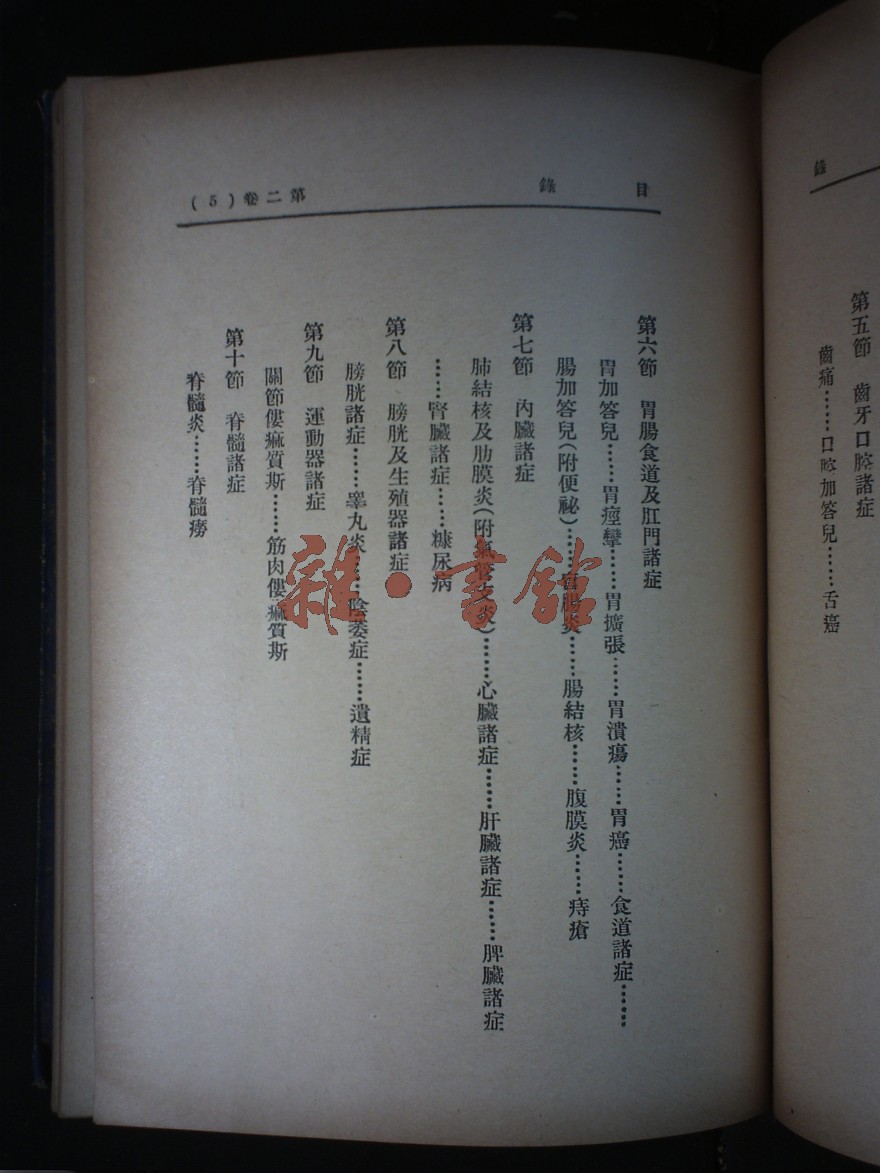 錄
第五節　齒牙口腔諸症
齒痛……口腔加答兒……舌癌
目　錄　第二卷(5)
第六節　胃腸食道及肛門諸症
胃加答兒……胃痙攣……胃擴張……胃潰瘍……胃癌……食道諸症……
腸加答兒(附便祕)……盲腸炎……腸結核……腹膜炎……痔瘡
第七節　內臟諸症
肺結核及肋膜炎(附氣管支炎)……心臟諸症……肝臟諸症……脾臟諸症
……腎臟諸症……糠尿病
第八節　膀胱及生殖器諸症
膀胱諸症……睾丸炎……陰萎症……遺精症
第九節　運動器諸症
關節僂痲質斯……筋肉僂痲質斯
第十節　脊髓諸症
脊髓炎……脊髓癆
雜·書館